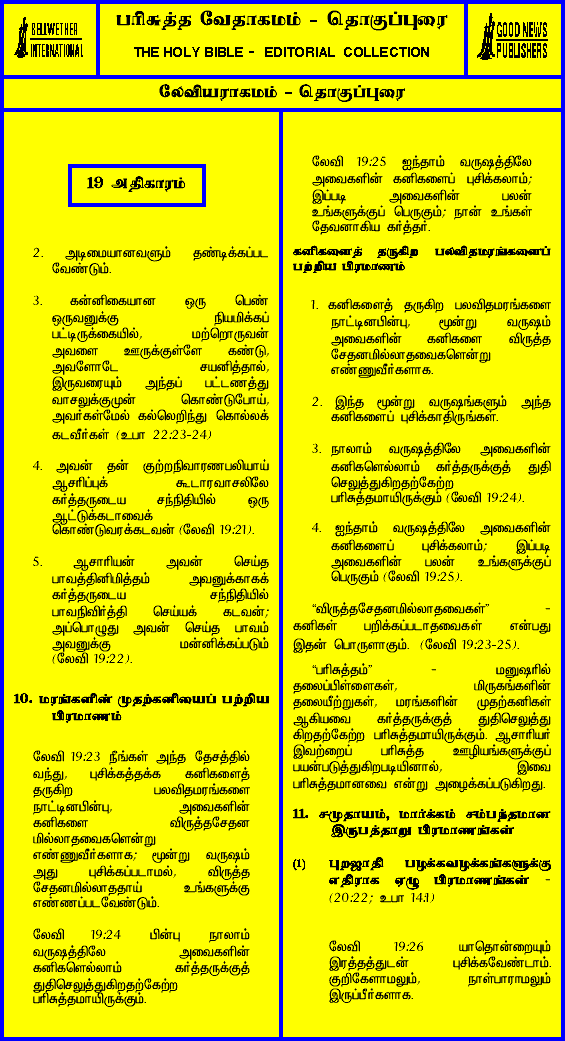 BELLWETHER
INTERNATIONAL
பரிசுத்த வேதாகமம் - தொகுப்புரை
THE HOLY BIBLE - EDITORIAL COLLECTION
GOOD NEWS
PUBLISHERS
லேவியராகமம் - தொகுப்புரை
19 அதிகாரம்
2. அடிமையானவளும் தண்டிக்கப்பட
வேண்டும்.
3. கன்னிகையான ஒரு பெண்
ஒருவனுக்கு நியமிக்கப்
பட்டிருக்கையில், மற்றொருவன்
அவளை ஊருக்குள்ளே கண்டு,
அவளோடே சயனித்தால்,
இருவரையும் அந்தப் பட்டணத்து
வாசலுக்குமுன் கொண்டுபோய்,
அவர்கள்மேல் கல்லெறிந்து கொல்லக்
கடவீர்கள் (உபா 22:23-24)
4. அவன் தன் குற்றநிவாரணபலியாய்
ஆசரிப்புக் கூடாரவாசலிலே
கர்த்தருடைய சந்நிதியில் ஒரு
ஆட்டுக்கடாவைக்
கொண்டுவரக்கடவன் (லேவி 19:21).
5. ஆசாரியன் அவன் செய்த
பாவத்தினிமித்தம் அவனுக்காகக்
கர்த்தருடைய சந்நிதியில்
பாவநிவிர்த்தி செய்யக் கடவன்;
அப்பொழுது அவன் செய்த பாவம்
அவனுக்கு மன்னிக்கப்படும்
(லேவி 19:22).
10. மரங்களின் முதற்கனியைப் பற்றிய
பிரமாணம்
லேவி 19:23 நீங்கள் அந்த தேசத்தில்
வந்து, புசிக்கத்தக்க கனிகளைத்
தருகிற பலவிதமரங்களை
நாட்டினபின்பு, அவைகளின்
கனிகளை விருத்தசேதன
மில்லாதவைகளென்று
எண்ணுவீர்களாக; மூன்று வருஷம்
அது புசிக்கப்படாமல், விருத்த
சேதனமில்லாததாய் உங்களுக்கு
எண்ணப்படவேண்டும்.
லேவி 19:24 பின்பு நாலாம்
வருஷத்திலே அவைகளின்
கனிகளெல்லாம் கர்த்தருக்குத்
துதிசெலுத்துகிறதற்கேற்ற
பரிசுத்தமாயிருக்கும்.
லேவி 19:25 ஐந்தாம் வருஷத்திலே
அவைகளின் கனிகளைப் புசிக்கலாம்;
இப்படி அவைகளின் பலன்
உங்களுக்குப் பெருகும்; நான் உங்கள்
தேவனாகிய கர்த்தர்.
கனிகளைத் தருகிற பலவிதமரங்களைப்
பற்றிய பிரமாணம்
1. கனிகளைத் தருகிற பலவிதமரங்களை
நாட்டினபின்பு, மூன்று வருஷம்
அவைகளின் கனிகளை விருத்த
சேதனமில்லாதவைகளென்று
எண்ணுவீர்களாக.
2. இந்த மூன்று வருஷங்களும் அந்த
கனிகளைப் புசிக்காதிருங்கள்.
3. நாலாம் வருஷத்திலே அவைகளின்
கனிகளெல்லாம் கர்த்தருக்குத் துதி
செலுத்துகிறதற்கேற்ற
பரிசுத்தமாயிருக்கும் (லேவி 19:24).
4. ஐந்தாம் வருஷத்திலே அவைகளின்
கனிகளைப் புசிக்கலாம்; இப்படி
அவைகளின் பலன் உங்களுக்குப்
பெருகும் (லேவி 19:25).
“விருத்தசேதனமில்லாதவைகள்” -
கனிகள் பறிக்கப்படாதவைகள் என்பது
இதன் பொருளாகும். (லேவி 19:23-25).
“பரிசுத்தம்” - மனுஷரில்
தலைப்பிள்ளைகள், மிருகங்களின்
தலையீற்றுகள், மரங்களின் முதற்கனிகள்
ஆகியவை கர்த்தருக்குத் துதிசெலுத்து
கிறதற்கேற்ற பரிசுத்தமாயிருக்கும். ஆசாரியர்
இவற்றைப் பரிசுத்த ஊழியங்களுக்குப்
பயன்படுத்துகிறபடியினால், இவை
பரிசுத்தமானவை என்று அழைக்கப்படுகிறது.
11. சமுதாயம், மார்க்கம் சம்பந்தமான
இருபத்தாறு பிரமாணங்கள்
(1) புறஜாதி பழக்கவழக்கங்களுக்கு
எதிராக ஏழு பிரமாணங்கள் -
(20:22; உபா 14:1)
லேவி 19:26 யாதொன்றையும்
இரத்தத்துடன் புசிக்கவேண்டாம்.
குறிகேளாமலும், நாள்பாராமலும்
இருப்பீர்களாக.